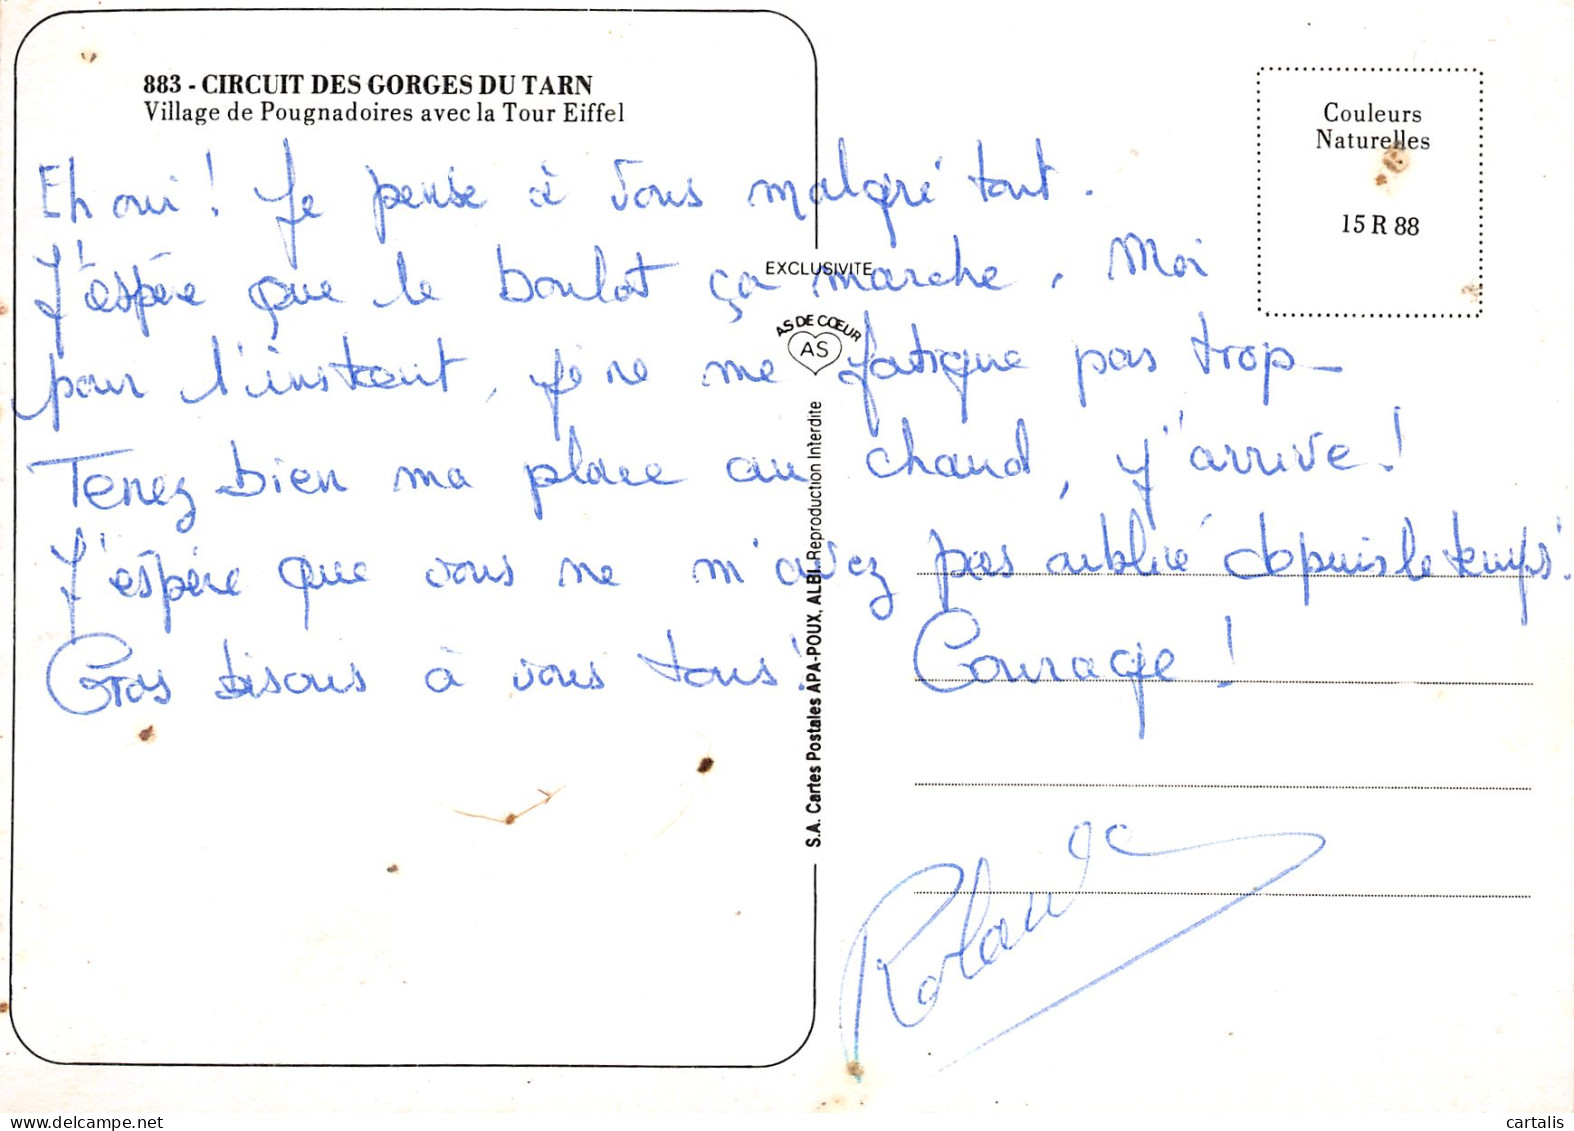 883 - CIRCUIT DES GORGES DU TARN
Village de Pougnadoires avec la Tour Eiffel
Couleurs
Naturelles
15 R 88
Eh oui ! Je pense à vous malgré tout.
J'espère que le boulot ça marche. Moi
pour l'instant, je ne me fatigue pas trop -
Tenez bien ma place au chaud, j'arrive !
J'espère que vous ne m'avez pas oublié depuis le temps !
Gros bisous à vous tous ! Courage !
Rolande
EXCLUSIVITE
AS DE CŒUR
AS
S.A. Cartes Postales APA-POUX, ALBI. Reproduction Interdite
cartalis